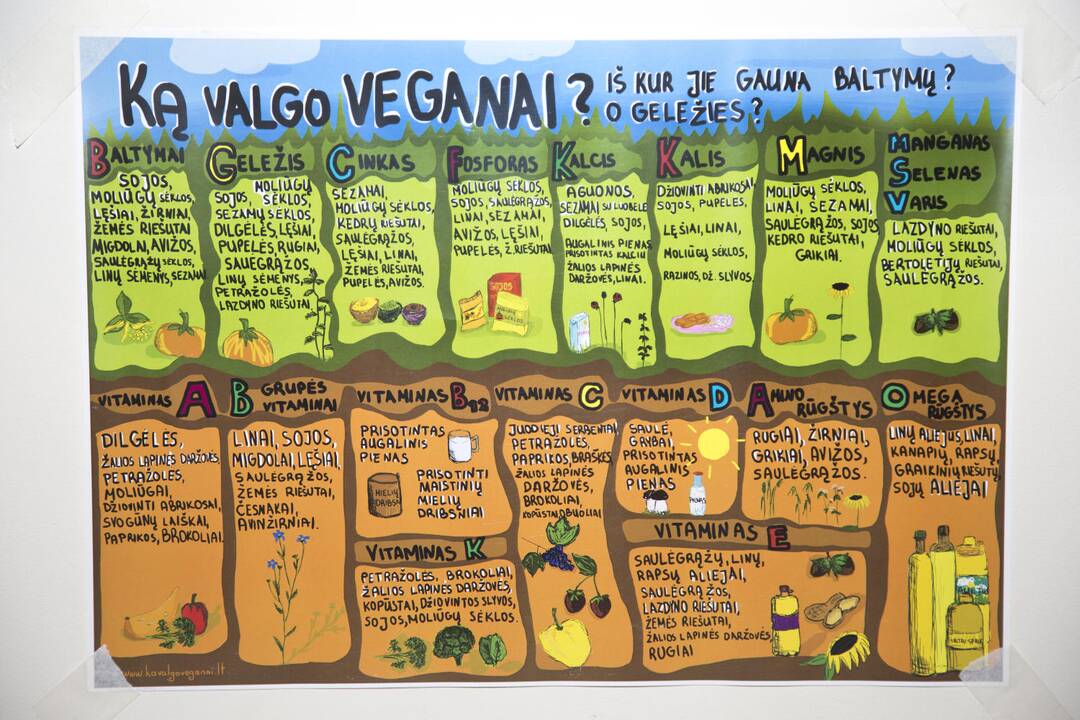 KĄ VALGO VEGANAI? IŠ KUR JIE GAUNA BALTYMŲ?
O GELEŽIES?
BALTYMAI
SOJOS,
MOLIŪGŲ SĖKLOS,
LĘŠIAI, ŽIRNIAI,
ŽEMĖS RIEŠUTAI
MIGDOLAI, AVIŽOS,
SAULĖGRĄŽŲ SĖKLOS,
LINŲ SĖMENYS, SEZAMAI
GELEŽIS
SOJOS, MOLIŪGŲ
SĖKLOS,
SEZAMŲ SĖKLOS,
DILGĖLĖS, LĘŠIAI,
PUPELĖS, RUGIAI,
SAUEGRĄŽOS,
LINŲ SĖMENYS,
PETRAŽOLĖS,
LAZDYNO RIEŠUTAI
CINKAS
SEZAMAI,
MOLIŪGŲ SĖKLOS,
KEDRŲ RIEŠUTAI,
SAULĖGRĄŽOS,
LĘŠIAI, LINAI,
ŽEMĖS RIEŠUTAI,
PUPELĖS, AVIŽOS.
FOSFORAS
MOLIŪGŲ SĖKLOS,
SOJOS, SAULĖGRĄŽOS,
LINAI, SEZAMAI,
AVIŽOS, LĘŠIAI,
PUPELĖS, Ž.RIEŠUTAI
SOJOS
MOLIŪGŲ
SĖKLOS
KALCIS
AGUONOS,
SEZAMAI SU LUOBELE
DILGĖLĖS, SOJOS,
AUGALINIS PIENAS
PRISOTINTAS KALCIU
ŽALIOS LAPINĖS
DARŽOVĖS, LINAI.
KALIS
DŽIOVINTI ABRIKOSAI,
SOJOS, PUPELĖS,
LĘŠIAI, LINAI,
MOLIŪGŲ SĖKLOS,
RAZINOS, DŽ. SLYVOS.
MAGNIS
MOLIŪGŲ SĖKLOS,
LINAI, SEZAMAI,
SAULĖGRĄŽOS, SOJOS
KEDRO RIEŠUTAI,
GRIKIAI.
MANGANAS
SELENAS
VARIS
LAZDYNO RIEŠUTAI,
MOLIŪGŲ SĖKLOS,
BERTOLETIJŲ RIEŠUTAI,
SAULĖGRĄŽOS.
VITAMINAS A
DILGĖLĖS,
ŽALIOS LAPINĖS DARŽOVĖS,
PETRAŽOLĖS,
MOLIŪGAI,
DŽIOVINTI ABRIKOSAI,
SVOGŪNŲ LAIŠKAI,
PAPRIKOS, BROKOLIAI.
B GRUPĖS
VITAMINAI
LINAI, SOJOS,
MIGDOLAI, LĘŠIAI,
SAULĖGRĄŽOS,
ŽEMĖS RIEŠUTAI,
ČESNAKAI,
AVINŽIRNIAI.
VITAMINAS B12
PRISOTINTAS
AUGALINIS
PIENAS
PRISOTINTI
MAISTINIŲ
MIELIŲ
DRIBSNIAI
MIELIŲ
DRIBSN
VITAMINAS K
PETRAŽOLĖS, BROKOLIAI,
ŽALIOS LAPINĖS DARŽOVĖS,
KOPŪSTAI, DŽIOVINTOS SLYVOS,
SOJOS, MOLIŪGŲ SĖKLOS.
VITAMINAS C
JUODIEJI SERBENTAI,
PETRAŽOLĖS,
PAPRIKOS, BRAŠKĖS,
ŽALIOS LAPINĖS
DARŽOVĖS,
BROKOLIAI,
KOPŪSTAI, OBUOLIAI
VITAMINAS D
SAULĖ,
GRYBAI,
PRISOTINTAS
AUGALINIS
PIENAS
PIENAS
AMINO
RŪGŠTYS
RUGIAI, ŽIRNIAI,
GRIKIAI, AVIŽOS,
SAULĖGRĄŽOS.
VITAMINAS E
SAULĖGRĄŽŲ, LINŲ,
RAPSŲ ALIEJAI,
SAULĖGRĄŽOS,
LAZDYNO RIEŠUTAI,
ŽEMĖS RIEŠUTAI,
ŽALIOS LAPINĖS DARŽOVĖS,
RUGIAI
OMEGA
RŪGŠTYS
LINŲ ALIEJUS, LINAI,
KANAPIŲ, RAPSŲ,
GRAIKINIŲ RIEŠUTŲ,
SOJŲ ALIEJAI
www.kavalgoveganai.lt